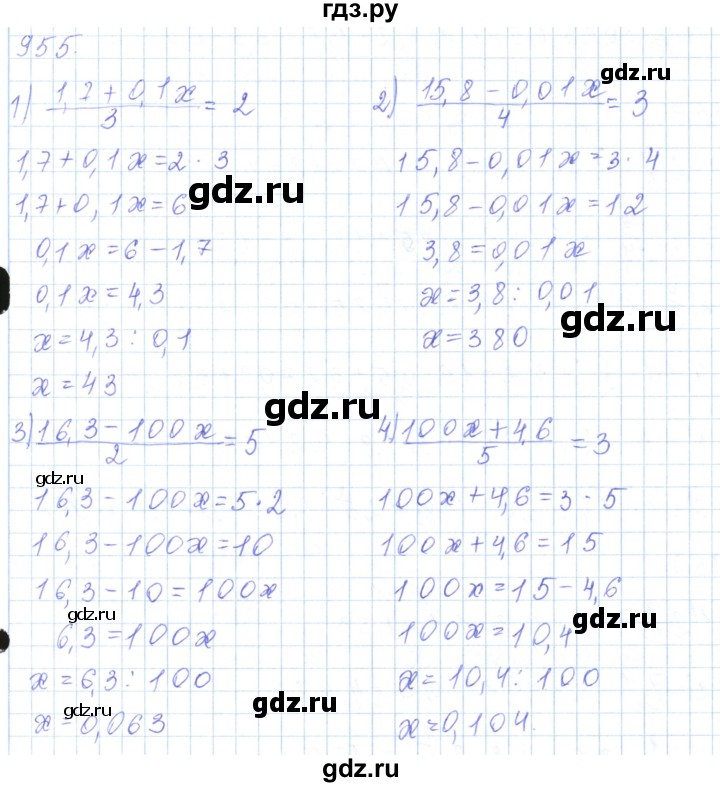 гдз.ру
955.
1) (1,7 + 0,1x)/3 = 2
1,7 + 0,1x = 2 · 3
1,7 + 0,1x = 6
0,1x = 6 - 1,7
0,1x = 4,3
x = 4,3 : 0,1
x = 43
2) (15,8 - 0,01x)/4 = 3
15,8 - 0,01x = 3 · 4
15,8 - 0,01x = 12
3,8 = 0,01x
x = 3,8 : 0,01
x = 380
3) (16,3 - 100x)/2 = 5
16,3 - 100x = 5 · 2
16,3 - 100x = 10
16,3 - 10 = 100x
6,3 = 100x
x = 6,3 : 100
x = 0,063
4) (100x + 4,6)/5 = 3
100x + 4,6 = 3 · 5
100x + 4,6 = 15
100x = 15 - 4,6
100x = 10,4
x = 10,4 : 100
x = 0,104.
gdz.ru
gdz.ru
gdz.ru
gdz.ru
gdz.ru
gdz.ru
gdz.ru
gdz.ru
gdz.ru
gdz.ru